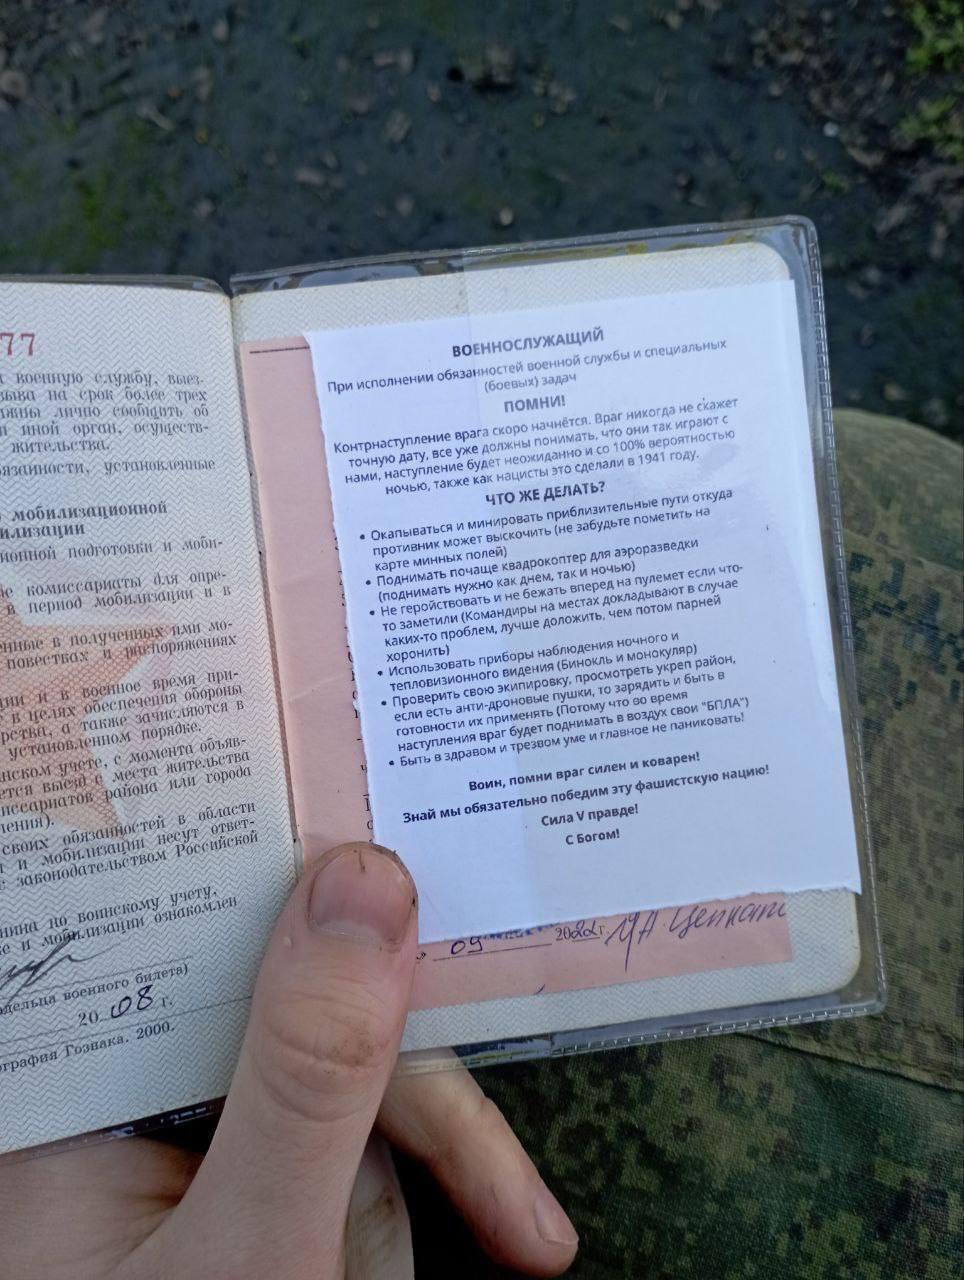 77
военную службу, выез-
зыва на срок более трех
лично сообщить об
иной орган, осуществ-
жительства.
установленные
мобилизационной
ионной подготовки и моби-
комиссариаты для опре-
в период мобилизации и в
в полученных ими мо-
повестках и распоряжениях
и в военное время при-
в целях обеспечения обороны
а также зачисляются в
установленном порядке.
учете, с момента объяв-
выезд с места жительства
района или города
своих обязанностей в области
и мобилизации несут ответ-
законодательством Российской
по воинскому учету,
и мобилизации ознакомлен
военного билета)
20 08 г.
Гознака. 2000.
ВОЕННОСЛУЖАЩИЙ
При исполнении обязанностей военной службы и специальных
(боевых) задач
ПОМНИ!
Контрнаступление врага скоро начнётся. Враг никогда не скажет
точную дату, все уже должны понимать, что они так играют с
нами, наступление будет неожиданно и со 100% вероятностью
ночью, также как нацисты это сделали в 1941 году.
ЧТО ЖЕ ДЕЛАТЬ?
• Окапываться и минировать приблизительные пути откуда
противник может выскочить (не забудьте пометить на
карте минных полей)
• Поднимать почаще квадрокоптер для аэроразведки
(поднимать нужно как днем, так и ночью)
• Не геройствовать и не бежать вперед на пулемет если что-
то заметили (Командиры на местах докладывают в случае
каких-то проблем, лучше доложить, чем потом парней
хоронить)
• Использовать приборы наблюдения ночного и
тепловизионного видения (Бинокль и монокуляр)
• Проверить свою экипировку, просмотреть укреп район,
если есть анти-дроновые пушки, то зарядить и быть в
готовности их применять (Потому что во время
наступления враг будет поднимать в воздух свои "БПЛА")
• Быть в здравом и трезвом уме и главное не паниковать!
Воин, помни враг силен и коварен!
Знай мы обязательно победим эту фашистскую нацию!
Сила V правде!
С Богом!
» 09 2022 г.